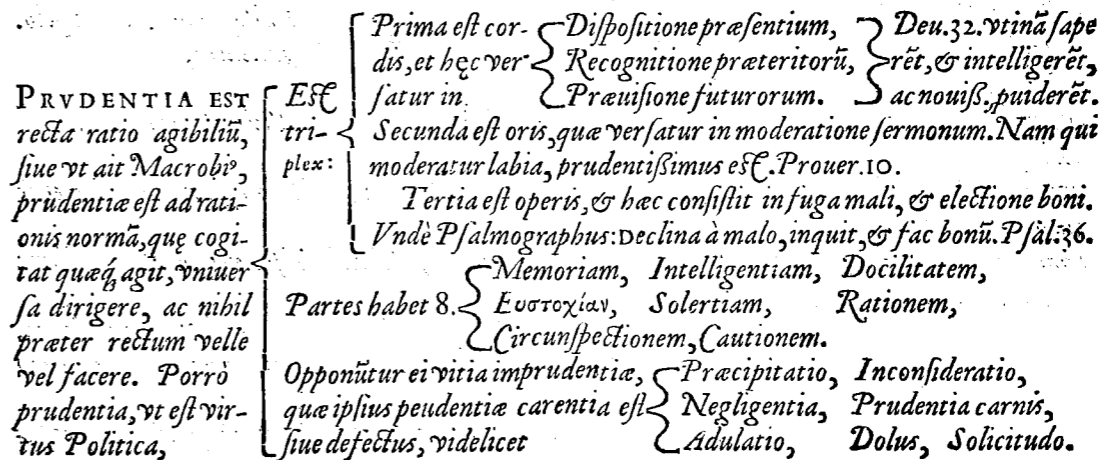 PRVDENTIA EST
recta ratio agibiliū,
ſiue vt ait Macrobiꝰ,
prudentiæ eſt ad rati-
onis normā, quę cogi-
tat quæq́; agit, vniuer
ſa dirigere, ac nihil
præter rectum velle
vel facere. Porrò
prudentia, vt eſt vir-
tus Politica,
Eſt
tri-
plex:
Prima eſt cor-
dis, et hęc ver-
ſatur in
Diſpoſitione præſentium,
Recognitione præteritorū,
Præuiſione futurorum.
Deu.32. vtinā ſape
rēt, & intelligerēt,
ac nouiß. puiderēt.
Secunda eſt oris, quæ verſatur in moderatione ſermonum. Nam qui
moderatur labia, prudentißimus eſt. Prouer.10.
Tertia eſt operis, & hæc conſiſtit in fuga mali, & electione boni.
Vndè Pſalmographus: Declina à malo, inquit, & fac bonū. Pſal.36.
Partes habet 8.
Memoriam, Intelligentiam, Docilitatem,
Ευστοχίαν, Solertiam, Rationem,
Circunſpectionem, Cautionem.
Opponūtur ei vitia imprudentiæ,
quæ ipſius peudentiæ carentia eſt
ſiue defectus, videlicet
Præcipitatio, Inconſideratio,
Negligentia, Prudentia carnis,
Adulatio, Dolus, Solicitudo.